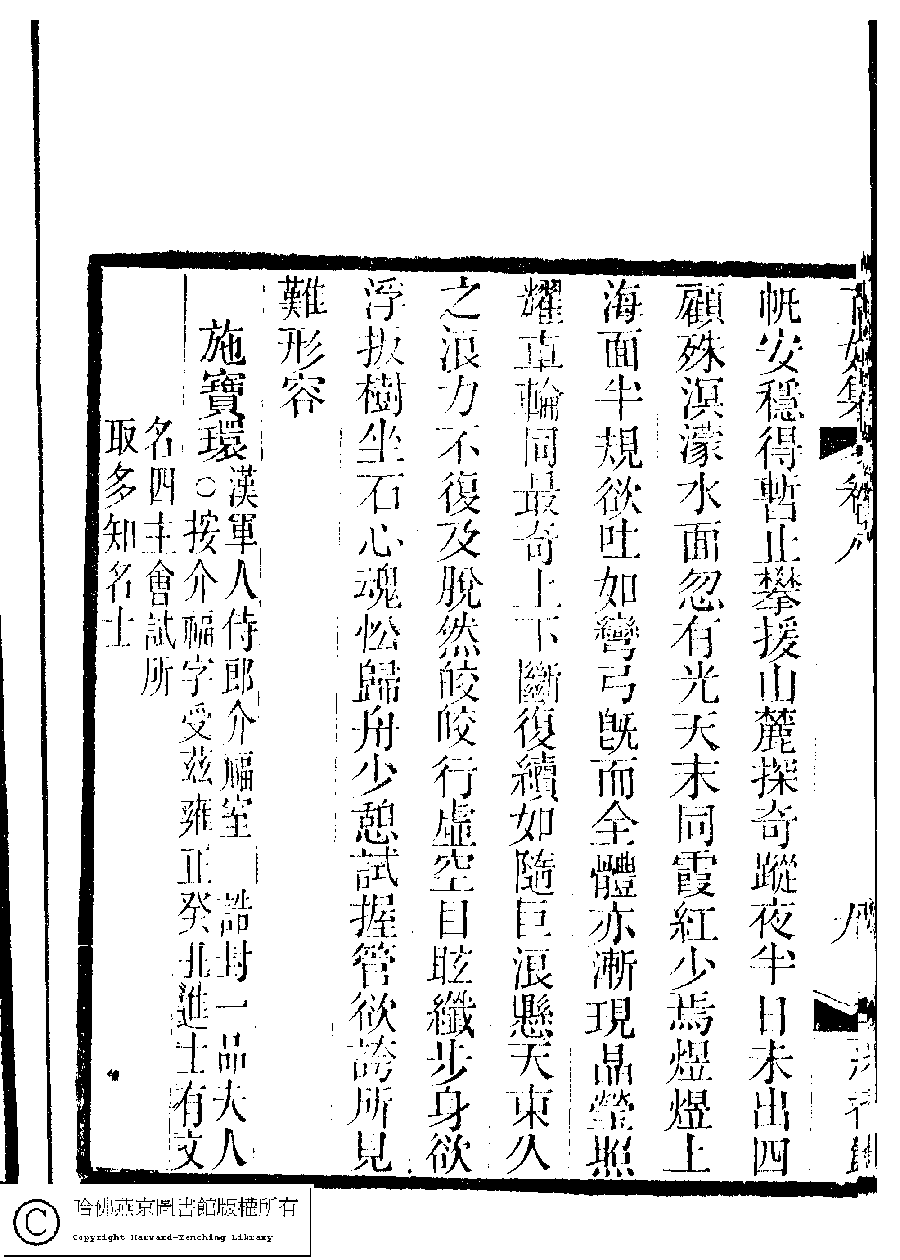 帆安穩得暫止攀援山麓探奇蹤夜半日未出四
顧殊溟濛水面忽有光天末同霞紅少焉煜煜上
海面半規欲吐如彎弓旣而全體亦漸現晶瑩照
耀車輪同最奇上下斷復續如隨巨浪懸天東久
之浪力不復及脫然皎皎行虛空目眩纖步身欲
浮扳樹坐石心魂忪歸舟少憩試握管欲誇所見
難形容
施寶環
漢軍人侍郎介福室 誥封一品夫人
○按介福字受茲雍正癸丑進士有文
名四主會試所
取多知名士
集
卷八
哈佛燕京圖書館版權所有
Copyright Harvard-Yenching Library